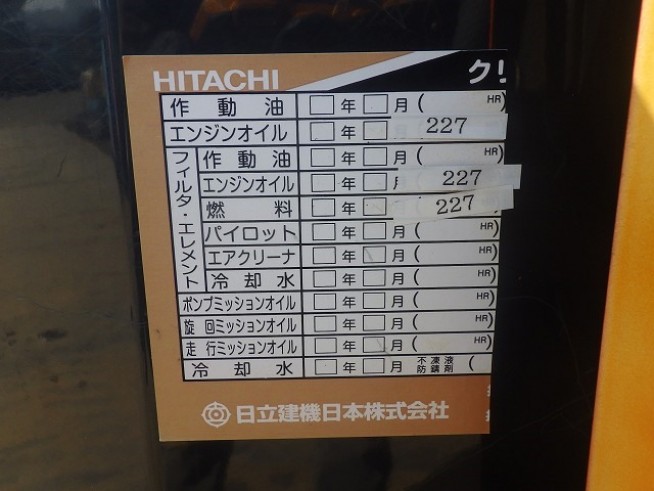 HITACHI
クリ
作動油 □年□月( HR)
エンジンオイル □年□ 227
フィルタ・エレメント
作動油 □年□月( HR)
エンジンオイル □年□ 227
燃料 □年□ 227
パイロット □年□月( HR)
エアクリーナ □年□月( HR)
冷却水 □年□月( HR)
ポンプミッションオイル □年□月( HR)
旋回ミッションオイル □年□月( HR)
走行ミッションオイル □年□月( HR)
冷却水 □年□月 不凍液 防錆剤 (
日立建機日本株式会社